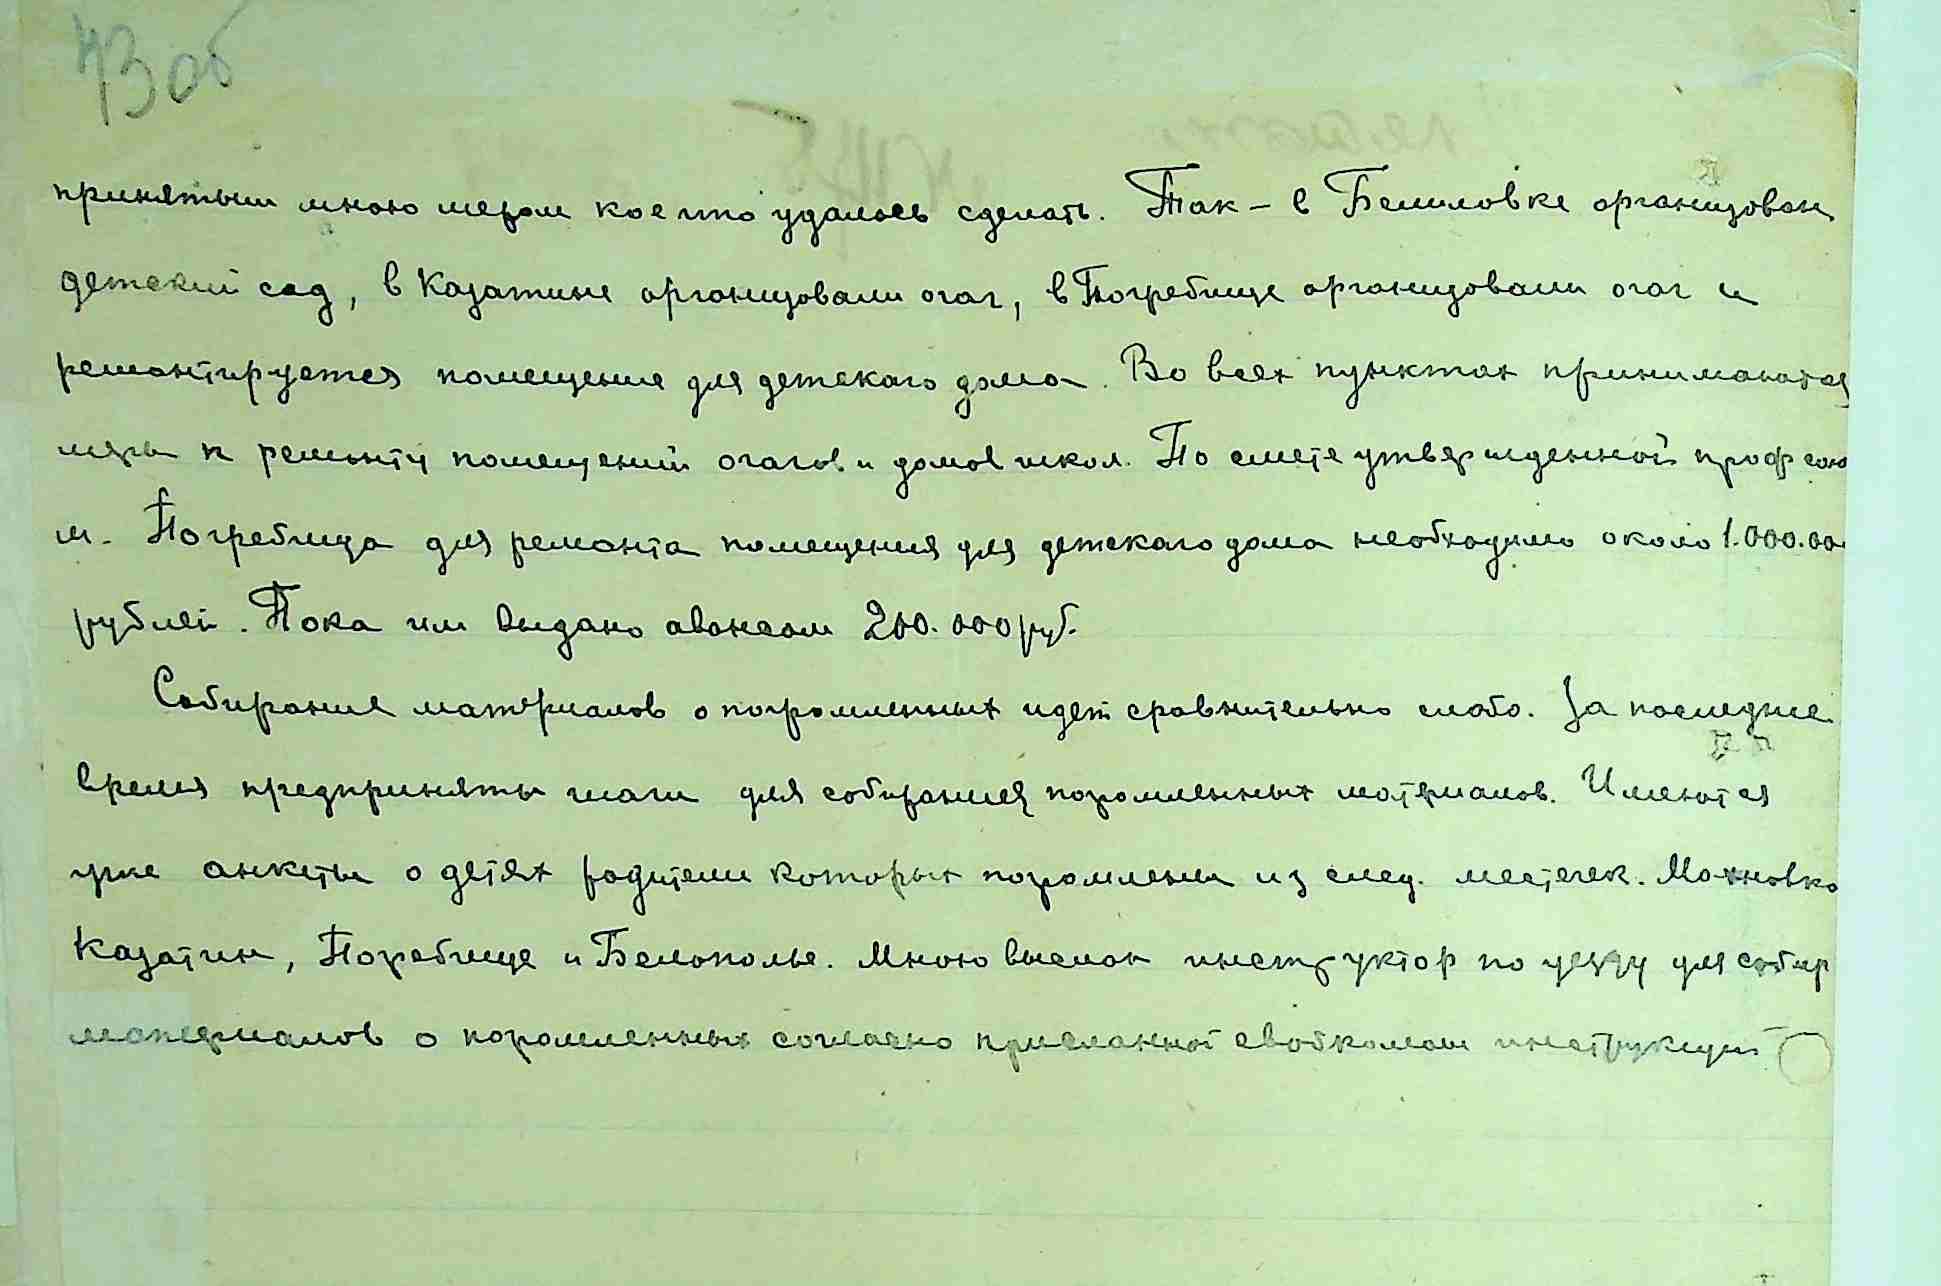 43 об
принятым мною мерам кое что удалось сделать. Так – в Белиловке организован
детский сад, в Казатине организовали очаг, в Погребище организовали очаг и
ремонтируется помещение для детскаго дома. Во всех пунктах принимаются
меры к ремонту помещений очагов и домов школ. По смете утвержденной профсою
м. Погребища для ремонта помещения для детскаго дома необходимо около 1.000.00
рублей. Пока им выдано авансом 200.000 руб.
Собирание материалов о погромленных идет сравнительно слабо. За последнее
время предприняты шаги для собирания погромленных материалов. Имеются
уже анкеты о детях родители которых погромлены из след. местечек. Махновка
Казатин, Погребище и Белополье. Мною выслан инструктор по уезду для собир
материалов о погромленных согласно присланной евобкомом инструкций